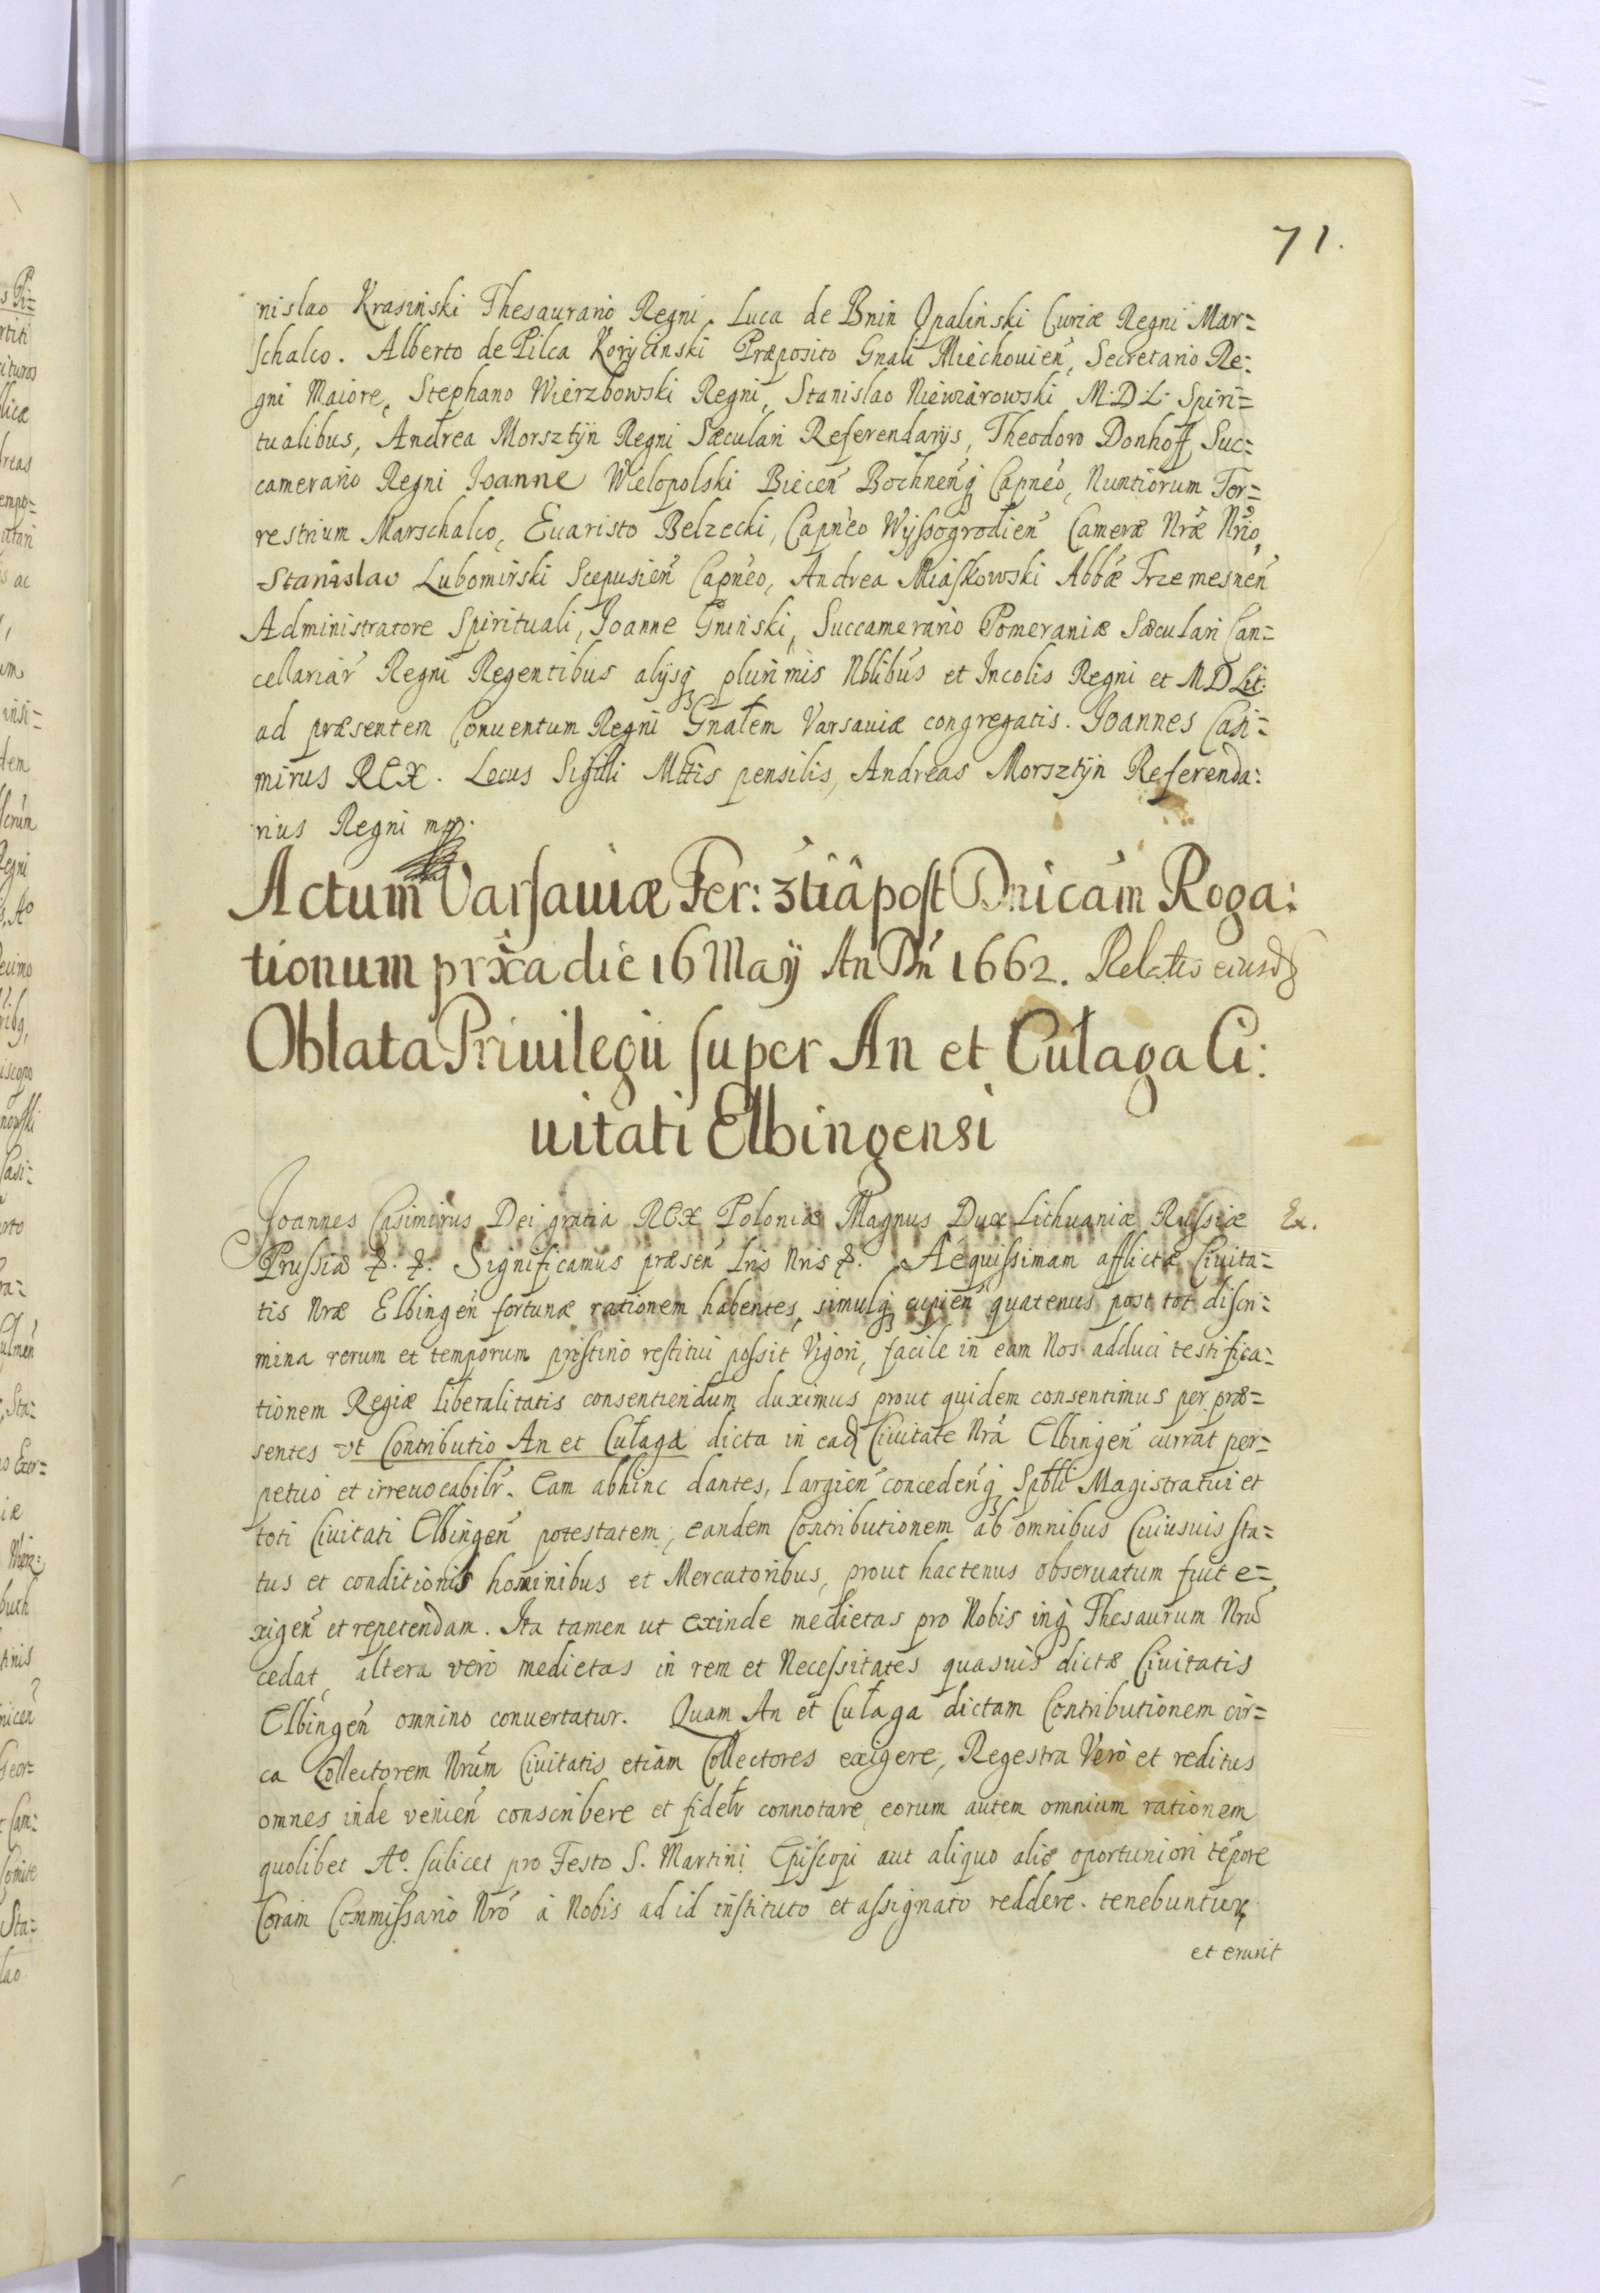 71.
nislao Krasinski Thesaurario Regni. Luca de Bnin Opalinski Curiæ Regni Mar=
schalco. Alberto de Pilca Korycinski Præposito Gnali Miechouien, Secretario Re=
gni Maiore, Stephano Wierzbowski Regni, Stanislao Niewiarowski M.D.L. Spiri=
tualibus, Andrea Morsztyn Regni Sæculari Referendarys, Theodoro Donhoff Suc=
camerario Regni Joanne Wielopolski Biecen Bochnenq Capneo, Nuntiorum Ter=
restrium Marschalco, Euaristo Belzecki, Capneo Wyssogrodien Cameræ Nræ Nrio,
Stanislao Lubomirski Scepusien Capneo, Andrea Miaskowski Abbæ Trzemesnen
Administratore Spirituali, Joanne Gninski, Succamerario Pomeraniæ Sæculari Can=
cellariar Regni Regentibus alijsq plurimis Nblibus et Incolis Regni et M D Lit:
ad præsentem Conuentum Regni Gnalem Varsauiæ congregatis. Joannes Casi=
mirus REX. Locus Sigilli Mttis pensilis, Andreas Morsztyn Referenda:
rius Regni mp.
Actum Varsauiæ Fer: 3tiâ post Dnicam Roga:
tionum prxa die 16 Maÿ An Dn 1662. Relatio eiusd
Oblata Priuilegii super An et Cułaga Ci:
uitati Elbingensi
Joannes Casimirus Dei gratia REX Poloniæ Magnus Dux Lithuaniæ Russiæ Ex.
Prussiæ &. &. Significamus præsen Lris Nris &. Aequissimam afflictæ Ciuita=
tis Nræ Elbingen fortunæ rationem habentes, simulq cupien quatenus post tot discri=
mina rerum et temporum pristino restitui possit Vigori, facile in eam Nos adduci testifica=
tionem Regiæ liberalitatis consentiendum duximus prout quidem consentimus per præ=
sentes vt Contributio An et Cułaga dicta in ead Ciuitate Nrâ Elbingen currat per=
petuo et irreuocabilr. Eam abhinc dantes, largien concedenq Spbli Magistratui et
toti Ciuitati Elbingen potestatem, eandem Contributionem ab omnibus Cuiusuis sta=
tus et conditionis hominibus et Mercatoribus, prout hactenus obseruatum fuit e=
xigen et repetendam. Ita tamen ut exinde medietas pro Nobis inq Thesaurum Nru
cedat, altera vero medietas in rem et Necessitates quasuis dictæ Ciuitatis
Elbingen omnino conuertatur. Quam An et Cułaga dictam Contributionem cir=
ca Collectorem Nrum Ciuitatis etiam Collectores exigere, Regestra Vero et reditus
omnes inde venien conscribere et fidelr connotare, eorum autem omnium rationem
quolibet Ao. scilicet pro Festo S. Martini Episcopi aut aliquo alio oportuniori tempore
Coram Commissario Nro à Nobis ad id instituto et assignato reddere. tenebuntur,
et erunt